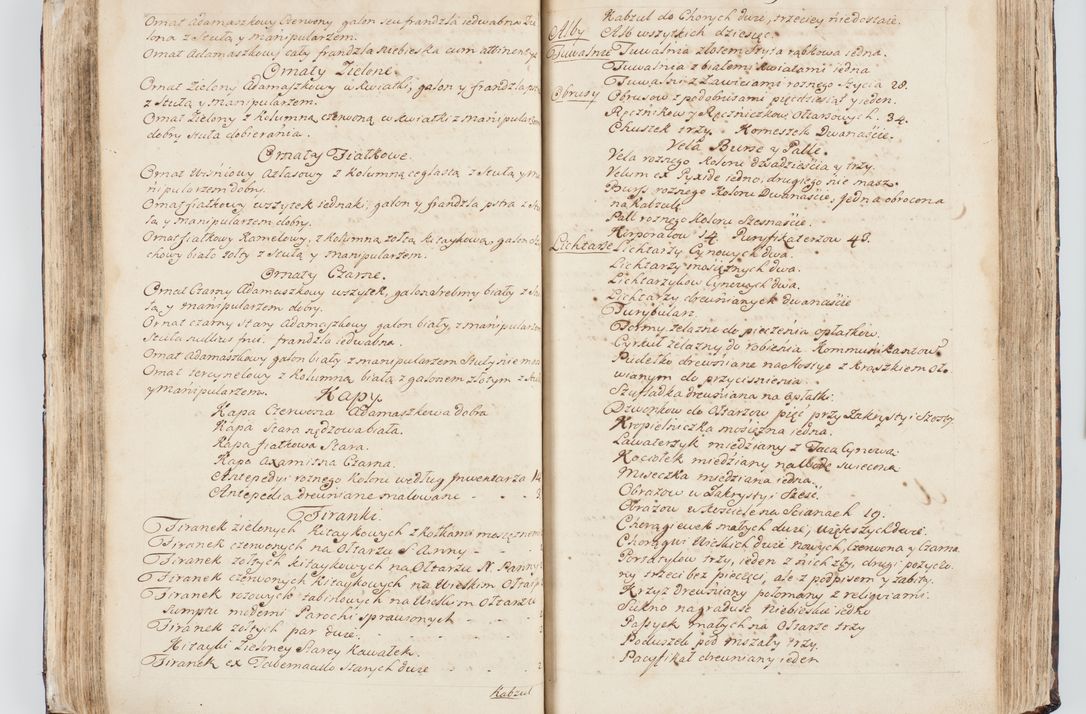 Ornat Adamaszkowy Czerwony galon seu frandzla iedwabna Zie
lona z Stułą y manipularzem.
Ornat Adamaszkowy cały frandzla niebieska cum attinentys
Ornaty Zielone.
Ornat Zielony Adamaszkowy w kwiatki, galon y frandzla
z Stułą y manipularzem.
Ornat Zielony z Kolumną czerwoną w kwiatki z manipularzem
dobry stuła dobierania.
Ornaty Fiałkowe.
Ornat Wiśniowy Atłasowy z kolumną ceglastą z Stułą y ma
nipularzem dobry.
Ornat fiałkowy wszytek iednaki, galon y frandzla pstra z Stu
łą y manipularzem dobry.
Ornat fiałkowy Kamelowy, z kolumną żołtą kitaykową, galon
chowy biało żołty z Stułą y manipularzem.
Ornaty Czarne.
Ornat Czarny Adamaszkowy wszytek, galon Srebrny biały z Stu
łą y manipularzem dobry.
Ornat czarny Stary Adamaszkowy galon biały, z manipularzem
Stuła nullius frui. frandzla iedwabna.
Ornat Adamaszkowy galon biały z manipularzem Stuły nie ma
Ornat tercynelowy z Kolumną białą z galonem złotym z Stułą
y Manipularzem.
Kapy.
Kapa Czerwona Adamaszkowa dobra
Kapa Stara nędzowa biała.
Kapa fiałkowa Stara.
Kapa Axamitna Czarna.
Antepedyi rożnego Koloru według Jnwentarza 14
Antepedia drewniane malowane - -
Firanki.
Firanek zielonych Kitaykowych z kołkami mosiężnemi
Firanek czerwonych na Ołtarzu S Anny - -
Firanek żołtych kitaykowych na Ołtarzu N. Panny
Firanek czerwonych Kitaykowych na Wielkim Ołtarzu
Firanek rożowych tabinowych na Wielkim Ołtarzu
Sumptu moderni Parochi Sprawionych - -
Firanek żołtych par dwie. - -
Kitayki Zieloney Starey Kawałek.
Firanek ex Tabernaculo Starych dwie - -
Kabzul
Kabzul do Chorych dwie, trzeciey niedostaie.
Alby Alb wszytkich dziesięć.
Tuwalnie Tuwalnia złotem szyta rąbkowa iedna.
Tuwalnia z białemi kwiatami iedna
Tuwalni z Zawiciami rożnego szycia 28.
Obrusy Obrusow z podobrusami pięcdziesiąt y ieden.
Ręcznikow y Ręczniczkow Ołtarzowych. 34.
Chustek trzy. Komeszek Dwanaście.
Vela Bursę y Palle.
Vela rożnego Koloru dwadzieścia y trzy.
Velum ex Pyxide iedno, drugiego nie masz.
Burs rożnego Koloru Dwanaście, jedna obrocona
na Kabzulę
Pall rożnego Koloru Szesnaście.
Korporałow 14. Puryfikaterzow 43.
Lichtarze Lichtarzy Cynowych dwa.
Lichtarzy mosiężnych dwa.
Lichtarzykow Cynowych dwa.
Lichtarzy drewnianych dwanaście
Turybularz.
Formy żelazne do pieczenia opłatkow.
Cyrkuł żelazny do robienia Kommunikantow
Pudełko drewniane na Hostye z Krążkiem oło
wianym do przyciśnienia.
Szufladka drewniana na opłatki.
Dzwonkow do Ołtarzow pięć przy Zakrystyi szosty
Kropielniczka mosiężna iedna.
Lawaterzyk miedziany z Tacą Cynową.
Kociołek miedziany na Wodę Swieconą
Miseczka miedziana iedna.
Obrazow w Zakrystyi Sześć.
Obrazow w Kościele na Scianach 19.
Chorągiewek małych dwie, większych dwie.
Chorągwi Wielkich dwie nowych, Czerwona y Czarna
Portatylow trzy, ieden z nich zły, drugi pożyczo
ny trzeci bez pieczęci, ale z podpisem y zabity.
Krzyż drewniany połomany z religiami.
Sukno na gradusie niebieskie iedko
Passyek małych na Ołtarze trzy
Poduszek pod mszały trzy.
Pacyfikał drewniany ieden